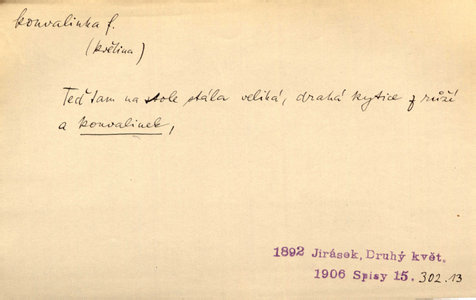 konvalinka f.
(květina)
Teď tam na stole stála veliká, drahá kytice z růží
a konvalinek,
1892 Jirásek, Druhý květ.
1906 Spisy 15. 302.13